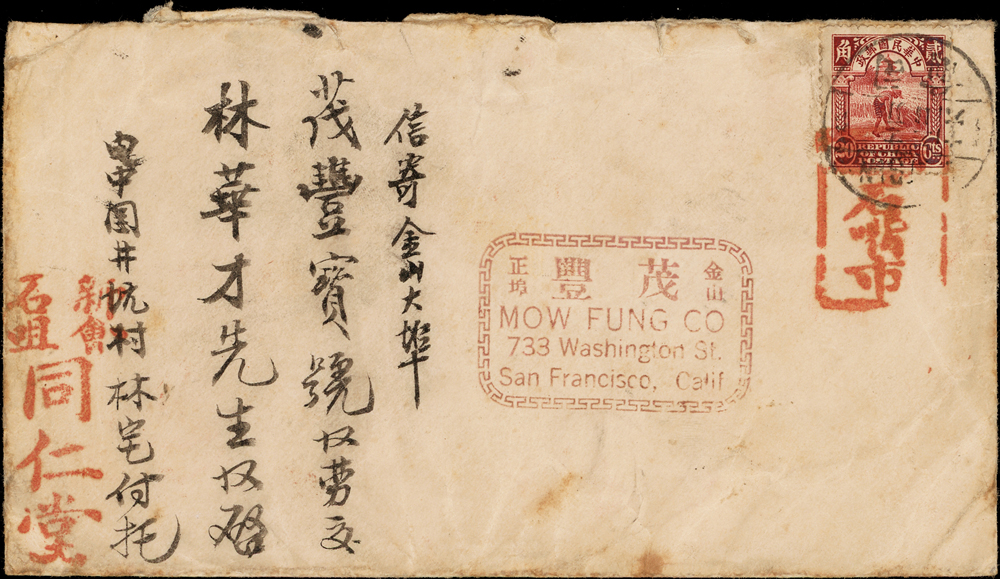 中華民國郵政
貳角
REPUBLIC
20 Cts
石咀市
金山 茂豐 正埠
MOW FUNG CO
733 Washington St.
San Francisco, Calif
信寄金山大埠
茂豐寶號收勞交
林華才先生收啓
中国井坑村林宅付托
新會
石咀
同仁堂